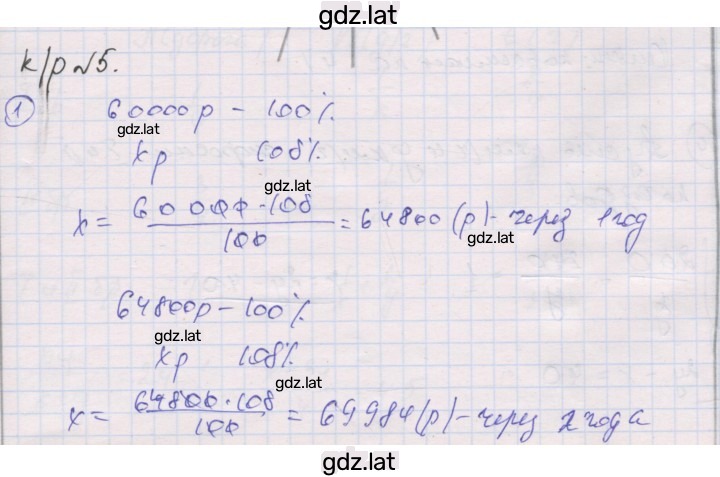 gdz.lat
к/р №5.
1 60000р – 100%
gdz.lat
хр 108%
gdz.lat
х = 60 000 · 108 / 100 = 64800 (р) - через 1 год
gdz.lat
64800р – 100%
gdz.lat
хр 108%
gdz.lat
х = 64800 · 108 / 100 = 69984 (р) - через 2 года
gdz.lat
gdz.lat